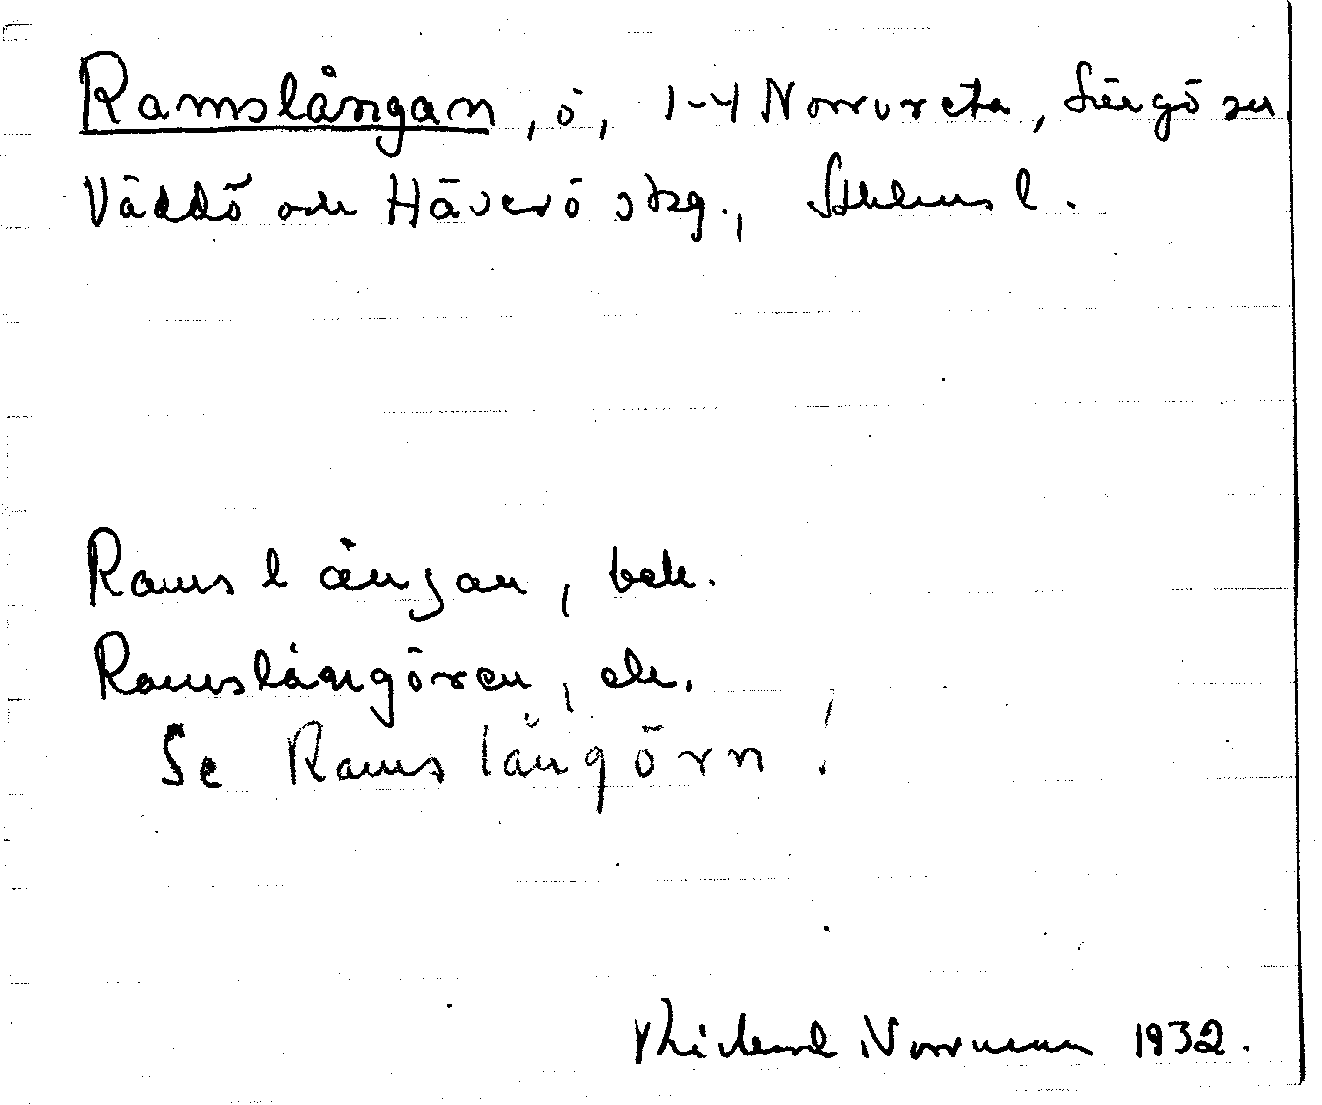 Ramslångan, ö, 1-4 Norrvreta, Singö sn
Väddö och Häverö skg., Sthlms l.
Ramslångan, bek.
Ramslångören, ek.
Se Ramslångörn!
Rickard Norrman 1932.